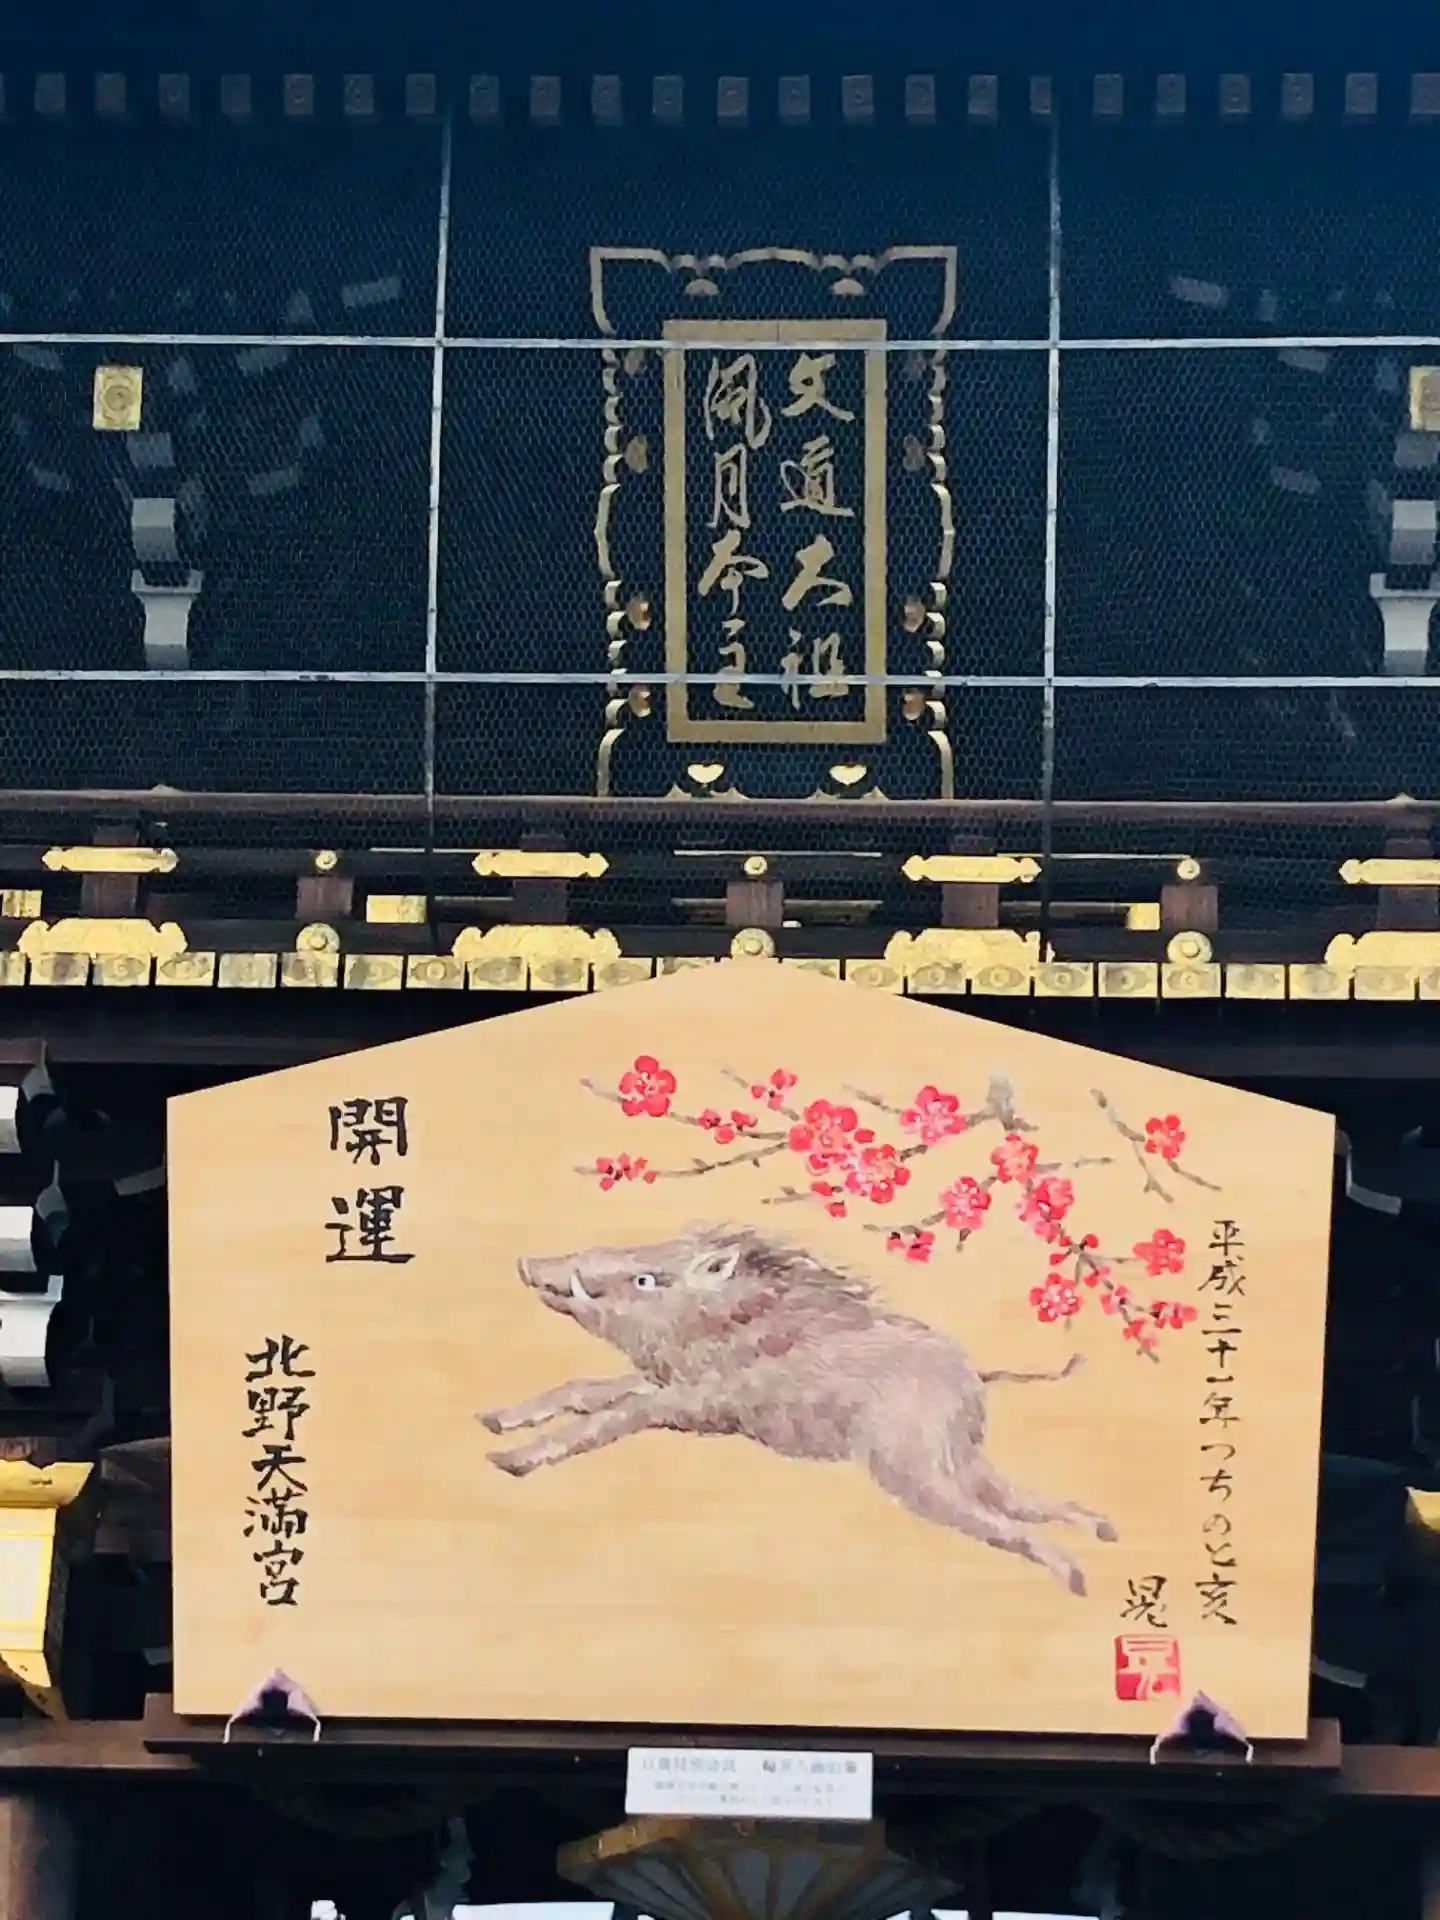 文道大祖
風月本主
平成三十一年つちのと亥
晃
開運
北野天満宮